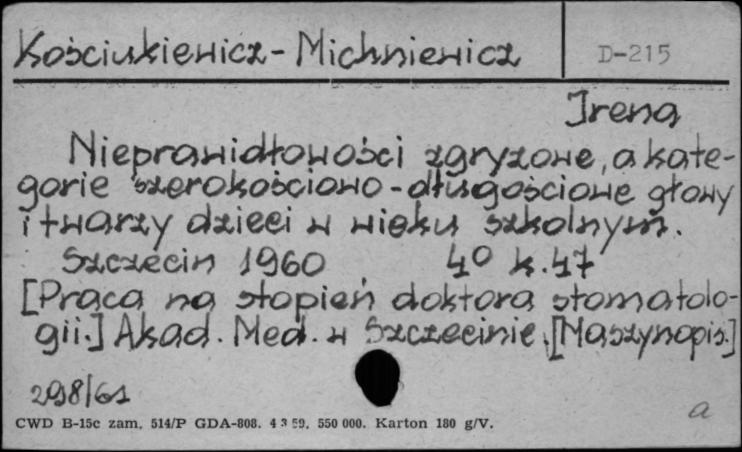 Kościukiewicz - Michniewicz D-215
Irena
Nieprawidłowości zgryzowe, a kate-
gorie szerokościowo - długościowe głowy
i twarzy dzieci w wieku szkolnym.
Szczecin 1960 4° k. 47
[Praca na stopień doktora stomatolo-
gii.] Akad. Med. w Szczecinie. [Maszynopis.]
298/61
a
CWD B-15c zam. 514/P GDA-808. 4 3 59. 550 000. Karton 180 g/V.